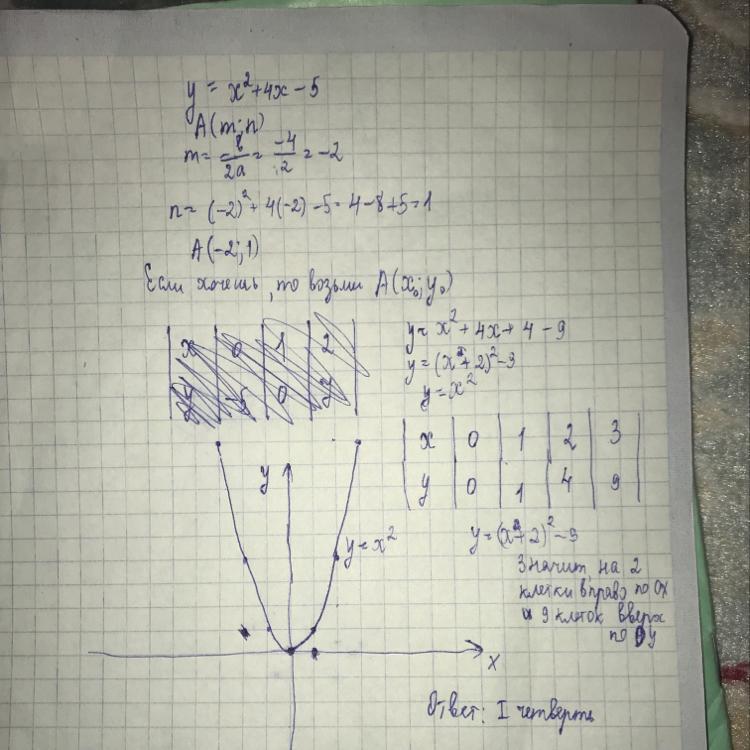 y = x²+4x-5
A(m;n)
m = -b/2a = -4/2 = -2
n = (-2)²+4(-2)-5=4-8+5=1
A(-2;1)
Если хочешь, то возьми A(x₀;y₀)
x 0 1 2
-5 0
y=x²+4x+4-9
y=(x+2)²-9
y=x²
x 0 1 2 3
y 0 1 4 9
y
y=x²
x
y=(x+2)²-9
Значит, на 2
клетки вправо по Ox
и 9 клеток вверх
по Oy
Ответ: I четверть